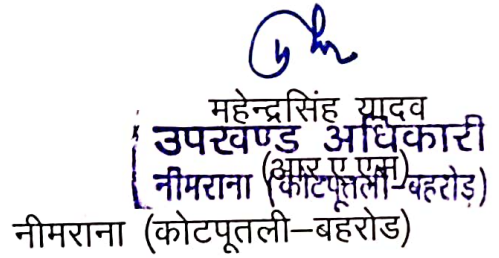 महेन्द्रसिंह यादव
उपखण्ड अधिकारी
(आर ए एस)
नीमराना (कोटपूतली-बहरोड़)
नीमराना (कोटपूतली–बहरोड)